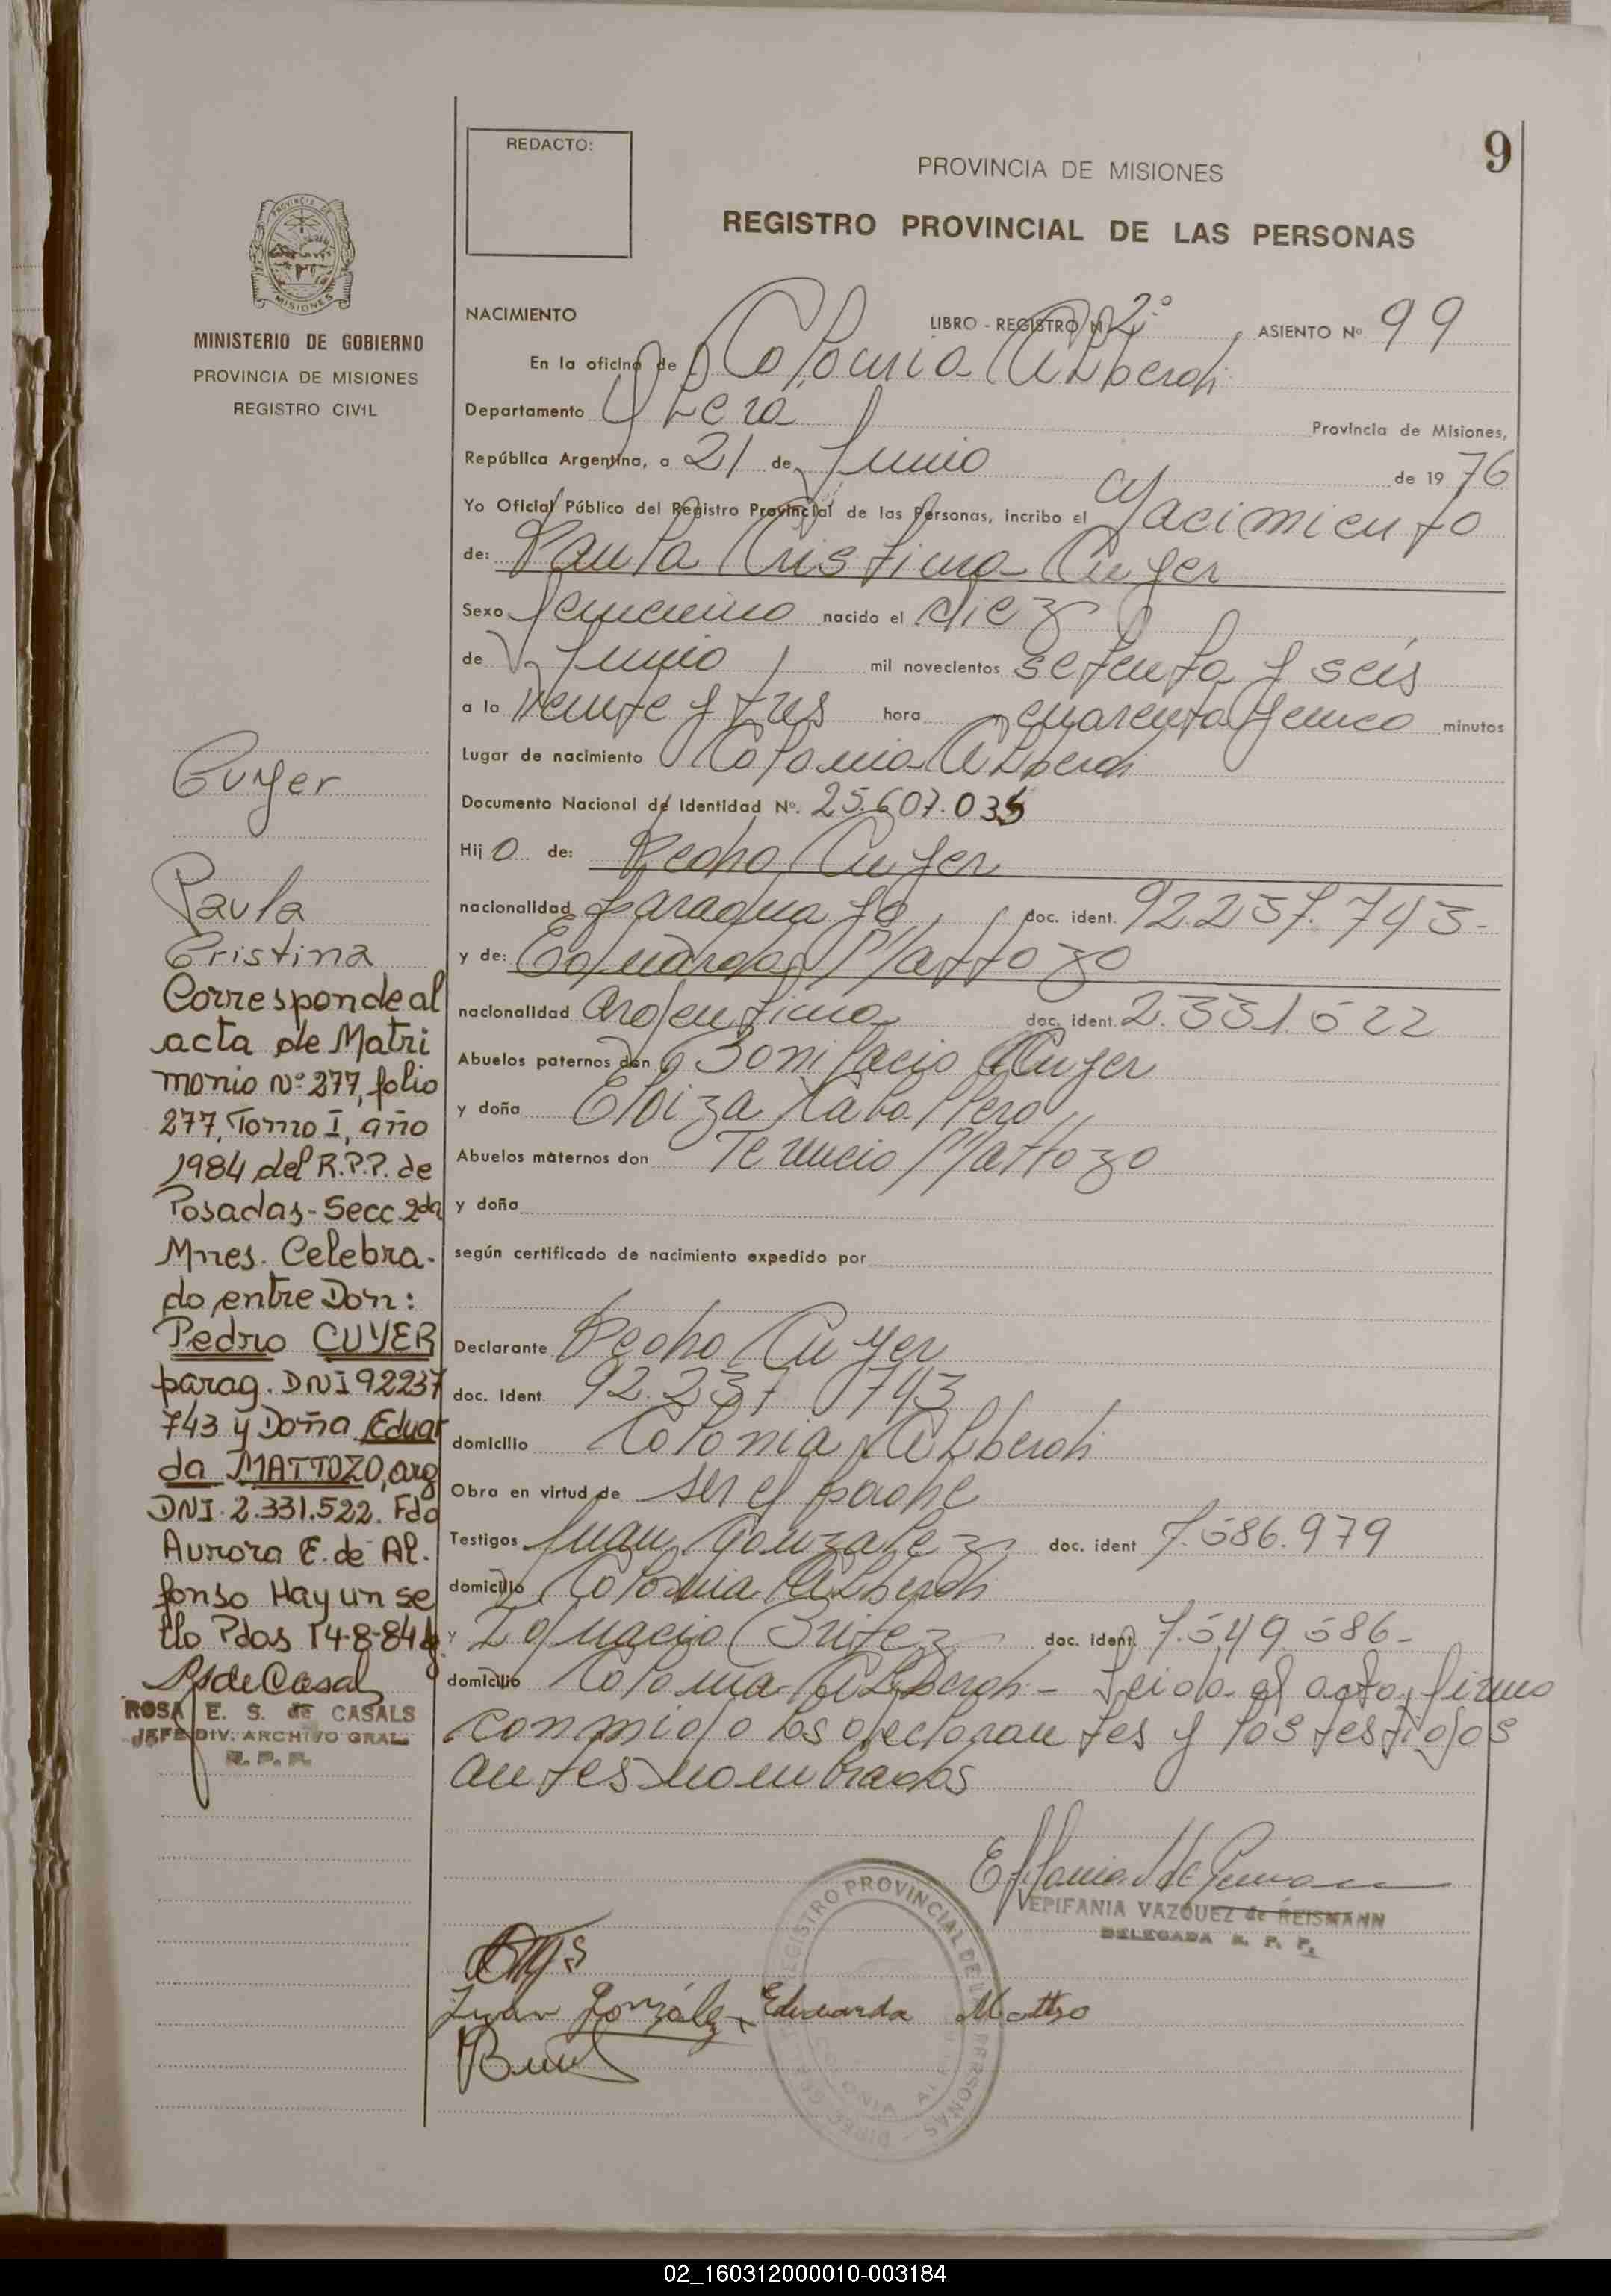 9
REDACTO:
PROVINCIA DE MISIONES
REGISTRO PROVINCIAL DE LAS PERSONAS
MISIONES
MINISTERIO DE GOBIERNO
PROVINCIA DE MISIONES
REGISTRO CIVIL
NACIMIENTO LIBRO - REGISTRO Nº 2º ASIENTO Nº 99
En la oficina de Colonia Alberdi
Departamento Obera Provincia de Misiones,
República Argentina, a 21 de Junio de 1976
Yo Oficial Público del Registro Provincial de las Personas, incribo el Nacimiento
de: Paula Cristina Cuyer
Sexo femenino nacido el diez
de Junio mil novecientos setenta y seis
a la veinte y tres hora cuarenta y cinco minutos
Lugar de nacimiento Colonia Alberdi
Documento Nacional de Identidad Nº. 25.607.035
Hijo de: Pedro Cuyer
nacionalidad paraguayo doc. ident. 92.237.743-
y de: Eduarda Mattozo
nacionalidad Argentina doc. ident. 2.331.522
Abuelos paternos don Bonifacio Cuyer
y doña Eloiza Caballero
Abuelos maternos don Terencio Mattozo
y doña
según certificado de nacimiento expedido por
Declarante Pedro Cuyer
doc. Ident. 92.237.743
domicilio Colonia Alberdi
Obra en virtud de ser el padre
Testigos Juan Gonzalez doc. ident 7.586.979
domicilio Colonia Alberdi
y Ignacio Britez doc. ident. 7.549.586-
domicilio Colonia Alberdi - Leida el acta, firman
conmigo los declarantes y los testigos
antes nombrados
Cuyer
Paula
Cristina
Corresponde al
acta de Matri
monio Nº 277, folio
277, Tomo I, año
1984 del R.P.P. de
Posadas-Secc 2da
Mnes. Celebra-
do entre Don:
Pedro CUYER
parag. DNI 92237
743 y Doña Eduar
da MATTOZO, arg
DNI. 2.331.522. Fdo
Aurora E. de Al-
fonso Hay un se
llo Pdas 14-8-84
RS de Casal
ROSA E. S. de CASALS
JEFE DIV. ARCHIVO GRAL.
R. P. P.
EPIFANIA VAZQUEZ de REISMANN
DELEGADA R. P. P.
REGISTRO PROVINCIAL DE LAS PERSONAS
COLONIA
Juan González Eduarda Mattzo
02_160312000010-003184